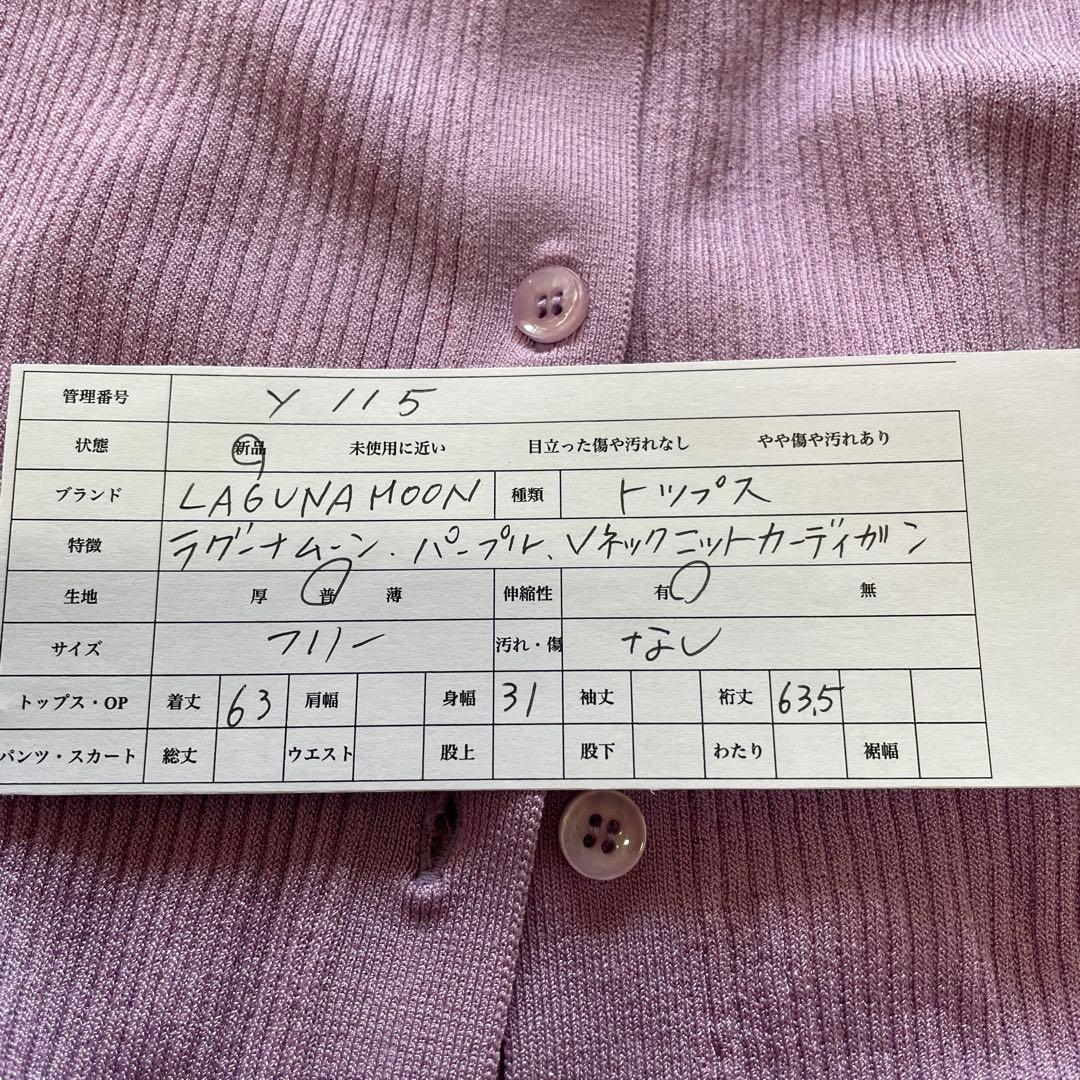 管理番号 Y 115
状態 新品 未使用に近い 目立った傷や汚れなし やや傷や汚れあり
ブランド LAGUNAMOON 種類 トップス
特徴 ラグーナムーン．パープル、Vネックニットカーディガン
生地 厚 普 薄 伸縮性 有 無
サイズ フリー 汚れ・傷 なし
トップス・OP 着丈 63 肩幅 身幅 31 袖丈 裄丈 63,5
パンツ・スカート 総丈 ウエスト 股上 股下 わたり 裾幅